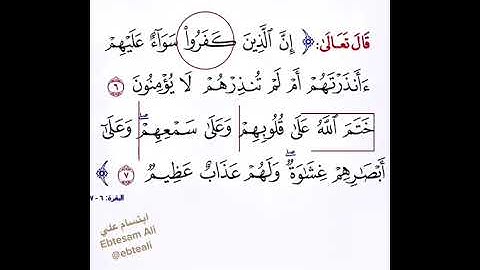 قَالَ تَعَالَىٰ: ﴿ إِنَّ ٱلَّذِينَ كَفَرُوا۟ سَوَآءٌ عَلَيْهِمْ
ءَأَنذَرْتَهُمْ أَمْ لَمْ تُنذِرْهُمْ لَا يُؤْمِنُونَ ٦
خَتَمَ ٱللَّهُ عَلَىٰ قُلُوبِهِمْ وَعَلَىٰ سَمْعِهِمْ ۖ وَعَلَىٰٓ
أَبْصَـٰرِهِمْ غِشَـٰوَةٌ ۖ وَلَهُمْ عَذَابٌ عَظِيمٌ ٧ ﴾
البقرة: ٦ - ٧
ابتسام علي
Ebtesam Ali
@ebteali